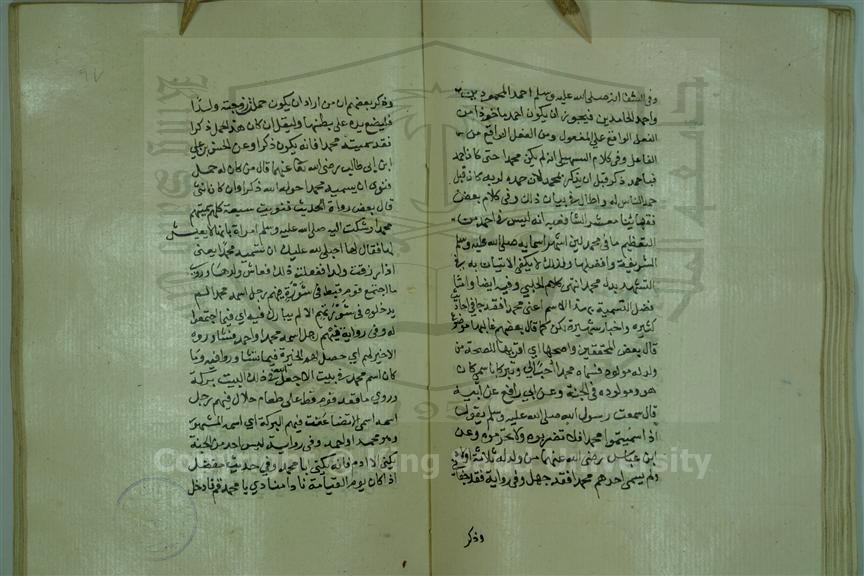 وفي الشفا انه صلى الله عليه وسلم احمد المحمودين
واحمد الحامدين فيجوز ان يكون احمد ماخوذا من
الفعل الواقع على المفعول ومن الفعل الواقع من
الفاعل وفي كلام السهيلي انه لم يكن محمدا حتى كان احمد
فباحمد ذكر قبل ان يذكر بمحمد لان حمده لربه كان قبل
حمد الناس له واطال في بيان ذلك وفي كلام بعض
فقهائنا معشر الشافعية انه ليس في احمد من
التعظيم ما في محمد لانه اشهر اسمايه صلى الله عليه وسلم
الشريفة وافضلها ولذلك لا يكفي الاتيان به في
التشهد بدله محمد انتهى كلام الحلبي وفيه ايضا
فضل التسمية بهذا الاسم اعني محمد افقد جا في احاديث
كثيرة واخبار شهيرة لكن كما قال بعضهم
قال بعض المحققين واصحها اي اقربها للصحة من
ولد له مولود فسماه محمدا حبا لي وتبركا باسمي كان
هو ومولوده في الجنة وعن ابي رافع عن ابيه
قال سمعت رسول الله صلى الله عليه وسلم يقول
اذا سميتموا محمدا فلا تضربوه ولا تحرموه وعن
ابن عباس رضي الله عنهما من ولد له ثلاثة اولاد
ولم يسمي احدهم محمد افقد جهل وفي رواية فقد
وذكر
٩٧
وذكر بعضهم ان من اراد ان يكون حمل زوجته ولدا
فليضع يده على بطنها وليقل ان كان هذا الحمل ذكرا
فقد سميته محمدا فانه يكون ذكرا وعن الحسن بن علي
ابن ابي طالب رضي الله تعا عنهما قال من كان له حمل
فنوى ان يسميه محمدا حوله الله ذكرا وان كان انثى
قال بعض رواة الحديث فنويت سبعة كلهم سميتهم
محمدا وشكت اليه صلى الله عليه وسلم امراة بانها لا يعيش
لها فقال لها اجعلي لله عليك ان تسميه محمدا يعني
اذا رزقت ولدا ففعلت ذلك فعاش ولدها وروي
ما اجتمع قوم قط في شورة فيهم رجل اسمه محمد لم
يدخلوه في شورتهم الا لم يبارك فيه اي فيما اجتمعوا
له وفي رواية فيهم رجل اسمه محمد او احمد فشاوروه
الاخير لهم اي حصل لهم الخيرة فيما تشاوروا فيه وما
كان اسم محمد في بيت الا جعل الله في ذلك البيت بركة
وروي ما قعد قوم قط على طعام حلال فيهم رجل
اسمه اسمي الا تضاعفت فيهم البركة اي اسمه المشهور
وهو محمد او احمد وفي رواية ليس احد من الجنة
يكنى الا ادم فانه يكنى ابا محمد وفي حديث معضل
اذا كان يوم القيامة نادا منادي يا محمد قم فادخل
Copyright © King Saud University